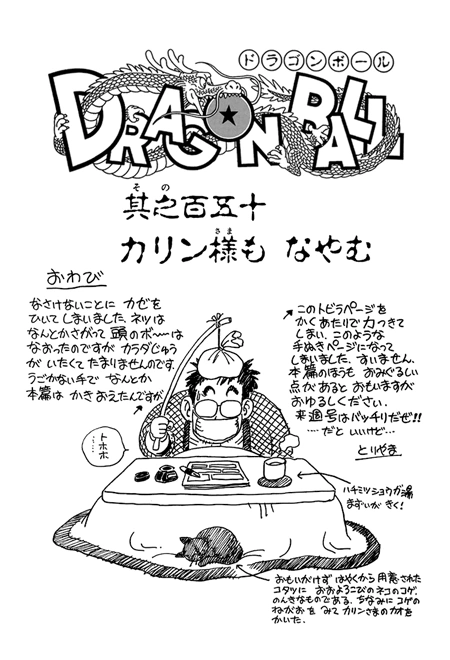 ドラゴンボール
DRAGON BALL
其之百五十
その
カリン様も なやむ
さま
おわび
なさけないことに カゼを
ひいてしまいました。ネツは
なんとかさがって 頭のボ〜〜は
なおったのですが カラダじゅう
が いたくて たまりませんのです。
うごかない手で なんとか
本篇は かきおえたんですが
このトビラページを
かくあたりで 力つきて
しまい、このような
手ぬきページになって
しまいました。すいません。
本篇のほうも おみぐるしい
点があるとおもいますが
おゆるしください。
来週号はバッチリだぜ!!
‥‥だと いいけど‥
とりやま
トホホ…
ハチミツショウガ湯
まずいが きく!
おもいがけず はやくから 用意された
コタツに おおよろこびの ネコのコゲ。
のんきなものである。ちなみに コゲの
ねがおを みて カリンさまの カオを
かいた。